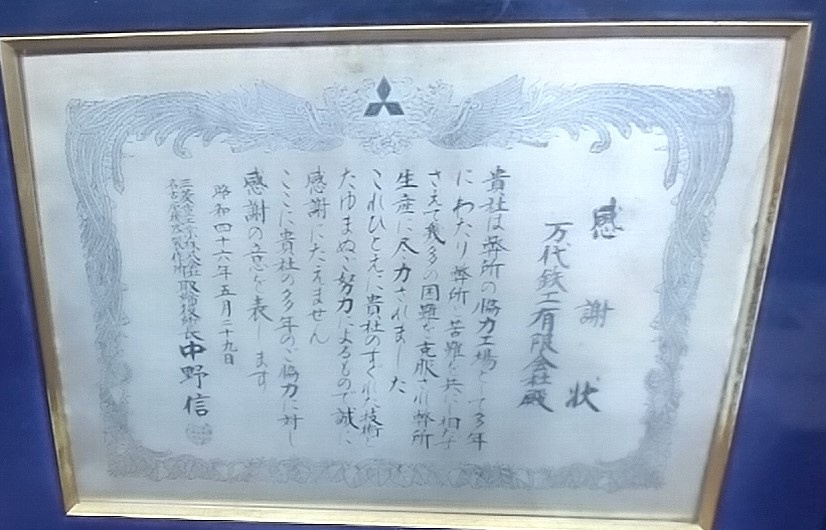 感謝状
万代鉄工有限会社殿
貴社は弊所の協力工場として多年
にわたり弊所と苦難を共に
さえて幾多の困難を克服され弊所
生産に尽力されました
これひとえに貴社のすぐれた技術と
たゆまぬご努力によるもので誠に
感謝にたえません
ここに貴社の多年のご協力に対し
感謝の意を表します
昭和四十六年五月二十九日
三菱重工業株式会社
名古屋航空機製作所
取締役所長 中野信